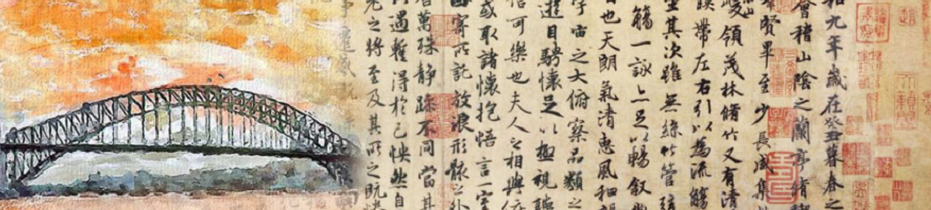 和九年歲在癸丑暮春之
會稽山陰之蘭亭脩
群賢畢至少長咸集
峻領茂林脩竹又有清
帶左右引以為流觴
坐其次雖無絲竹管
觴一詠亦足以暢敘
日也天朗氣清惠風和
宇宙之大俯察品類之
遊目騁懷足以極視聽
信可樂也夫人之相與
或取諸懷抱悟言一室
寄所託放浪形骸之外
萬殊靜躁不同當其
遇蹔得於己怏然自
老之將至及其所之既
事遷感